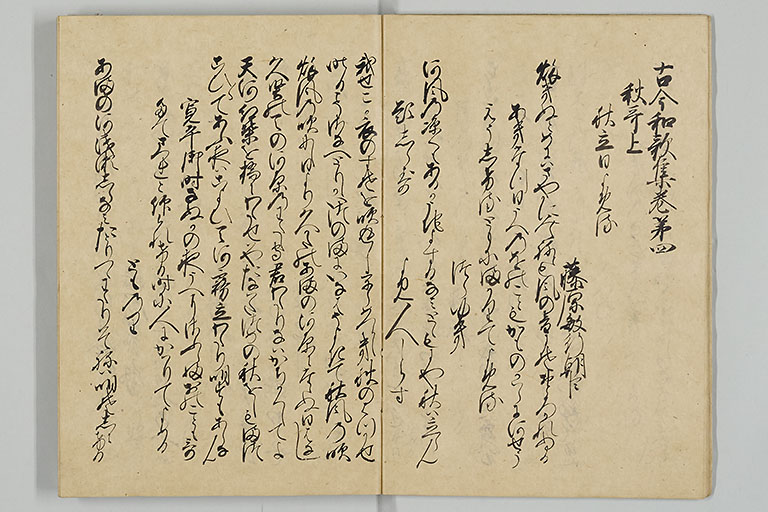 古今和歌集巻第四
秋哥上
秋立日よめる
藤原敏行朝臣
秋きぬとめにはさやかに見えねとも風の音にそおとろかれぬる
あきたつ日うへのをのこともかものかはらにかはせう
えうしけるともにまかりてよめる
つらゆき
河風の涼しくもあるかうちよする浪とともにや秋は立らん
題しらす
よみ人しらす
我せこか衣のすそを吹返しうらめつらしき秋のはつ風
秋風の吹にし日より久かたのあまの河原にたゝぬ日はなし
久方のあまの河原のわたし守君わたりなはかちかくしてよ
天河紅葉を橋にわたせはやたなはたつめの秋をしもまつ
こひ〳〵てあふ夜はこよひ天河霧立わたり明すもあらなん
寛平御時なぬかの夜うへにさふらふをのことも哥
たてまつれと仰られける時に人にかはりてよめる
とものり
あまの河浅瀬しら浪たとりつゝわたりはてねは明そしにける